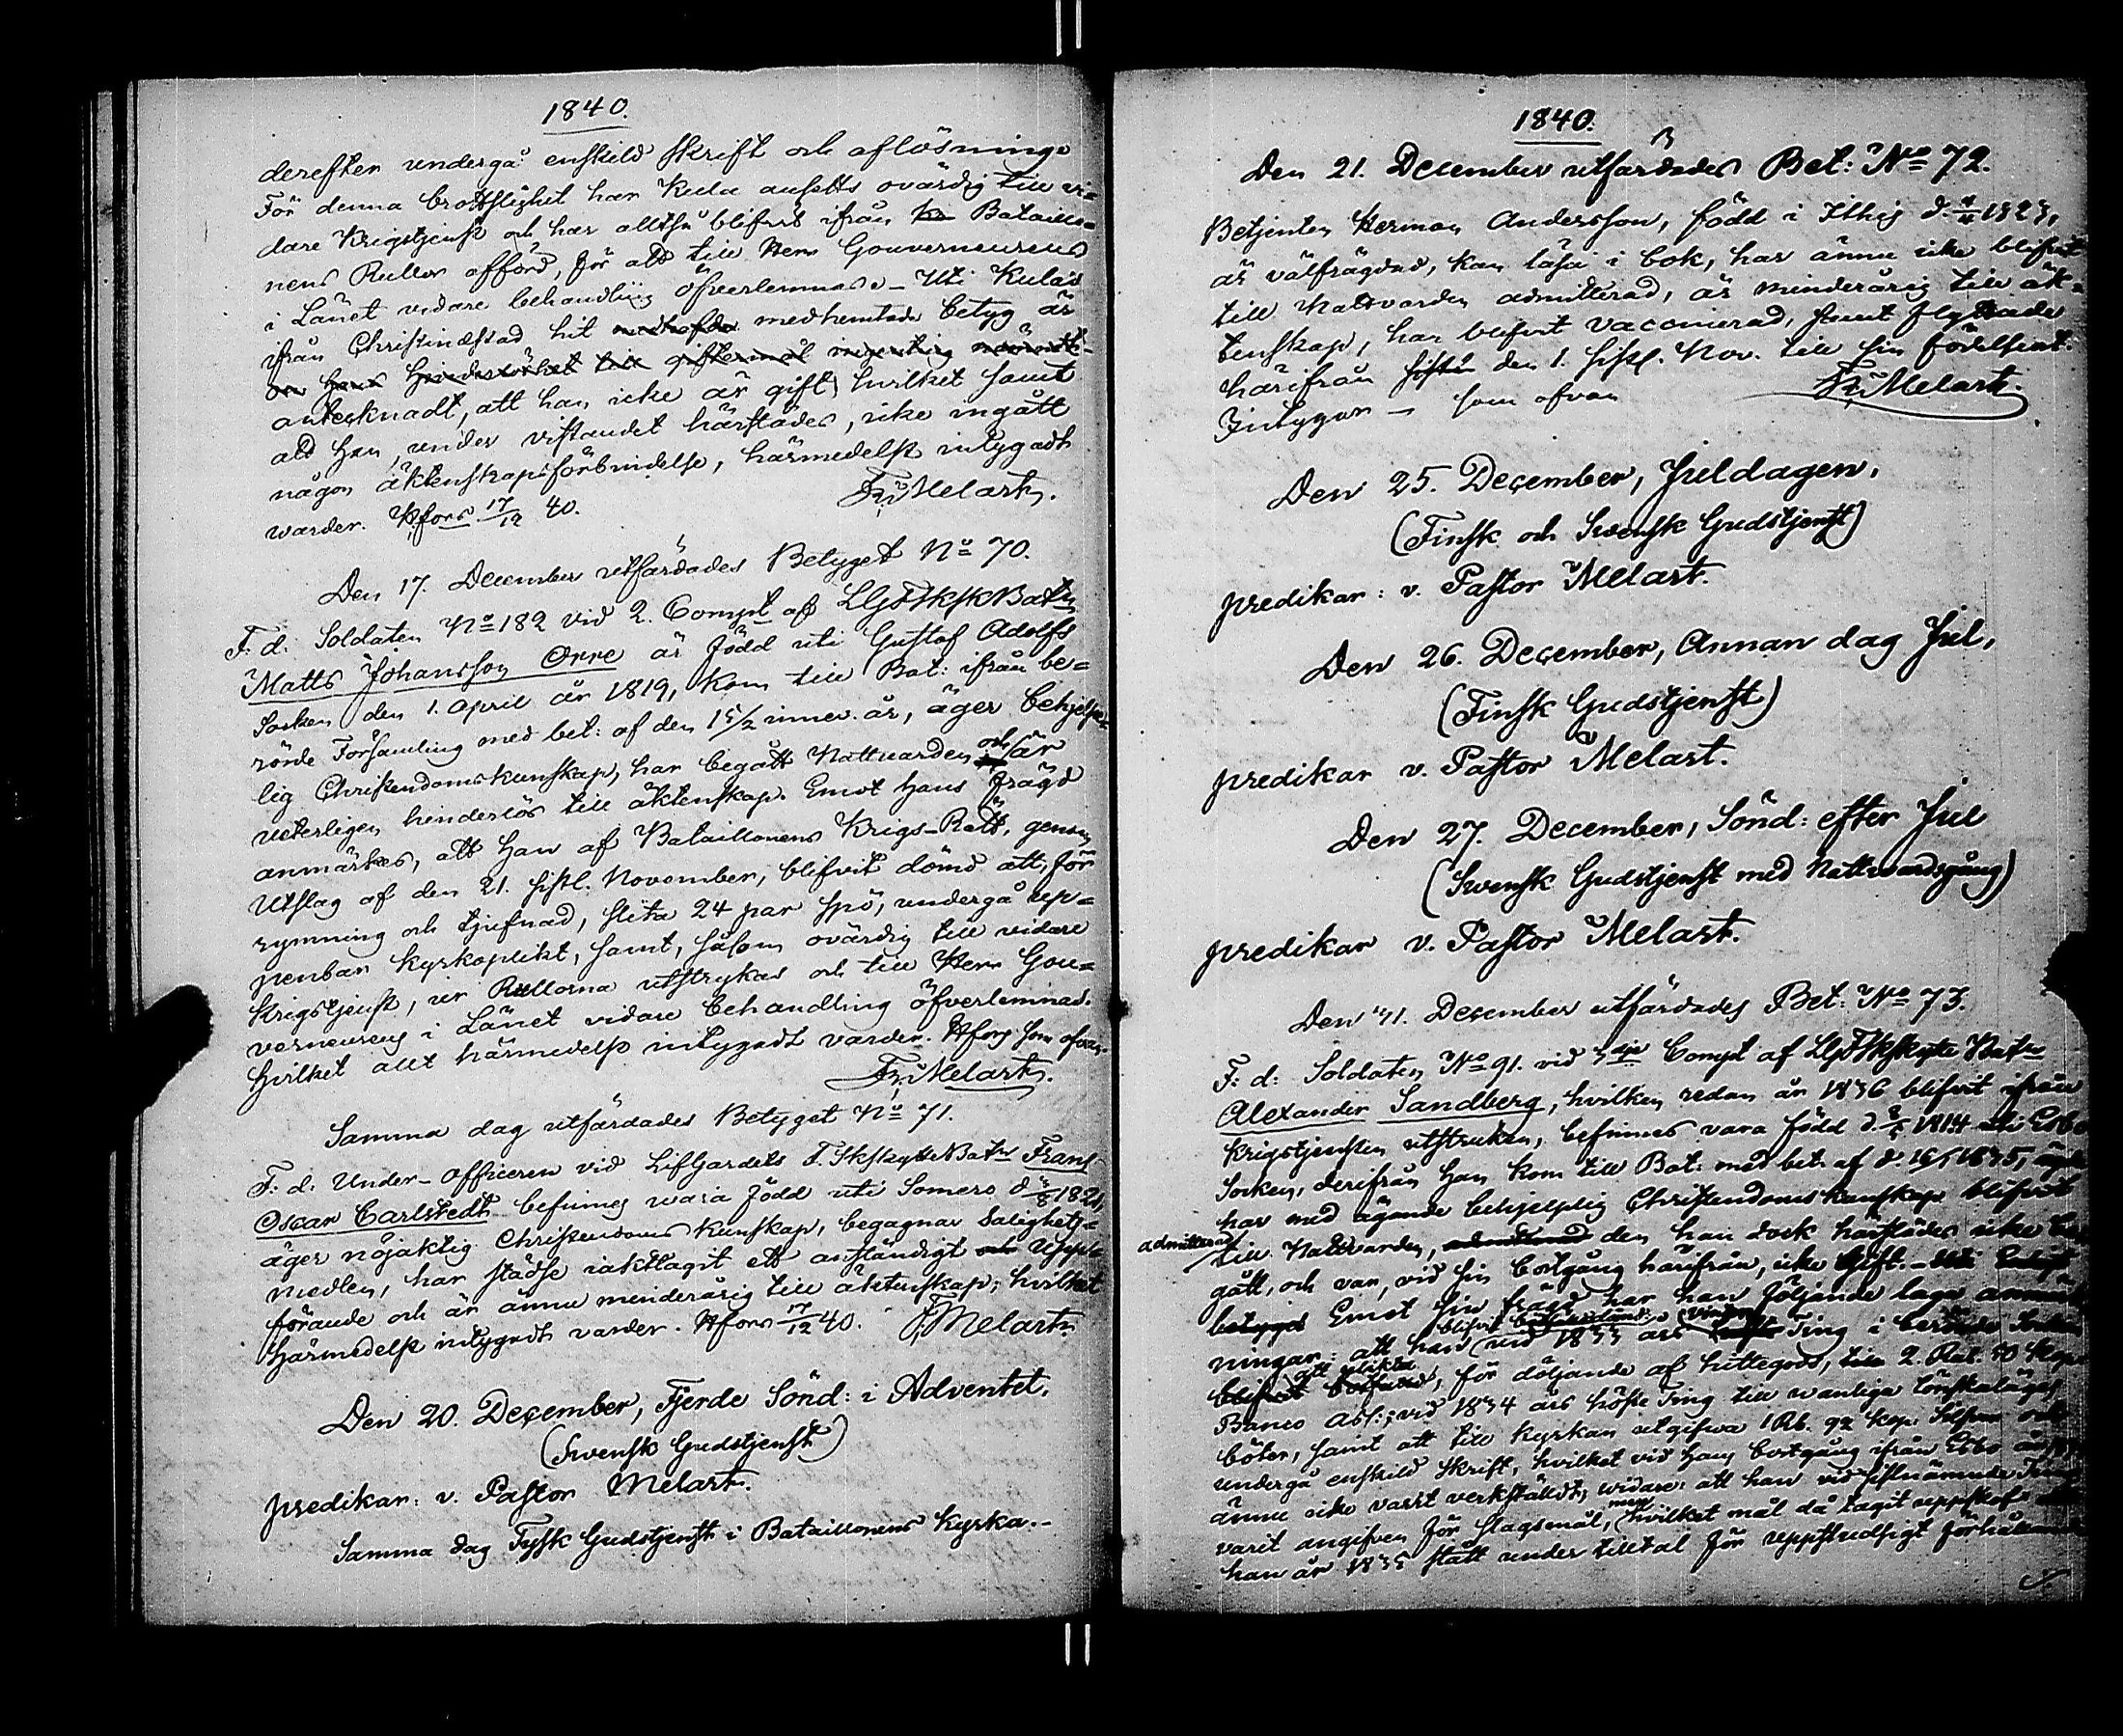 1840.
derefter undergå enskild skrift och aflösning.
För denna brottslighet har Kula ansetts ovärdig till vi=
dare Krigstjenst och har alltså blifvit ifrån Bataillo=
nens Rullor afförd, för att till Herr Gouverneurens
i Länet vidare behandling öfverlemnas. - Uti Kulas
ifrån Christinæstad hit medhemtade betyg är
hans hinderslöshet till giftermål ingenting
antecknadt, att han icke är gift, hvilket samt
att han, under vistandet härstädes, icke ingått
någon äktenskapsförbindelse, härmedelst intygadt
warder. Hfors 17/12 40. Fr: Melart.
Den 17. December utfärdades Betyget No 70.
F. d. Soldaten No 182 vid 2. Compt af LGFSkskBatn
Matts Johansson Orre är född uti Gustaf Adolfs
Socken den 1. April år 1819, kom till Bat: ifrån be=
rörde Församling med bet: af den 15/2 innev. år, äger behjelp=
lig Christendomskunskap, har begått Nattvarden och är
veterligen hinderslös till äktenskap. Emot hans frägd
anmärkes, att han af Bataillonens Krigs-Rätt, genom
Utslag af den 21. sistl. November, blifvit dömd att, för
rymning och tjufnad, slita 24 par spö, undergå up=
penbar kyrkoplikt, samt, såsom ovärdig till vidare
Krigstjenst, ur Rullorna utstrykas och till Herr Gou=
verneurens i Länet vidare behandling öfverlemnas.
Hvilket allt härmedelst intygadt varder. Hfors som ofvan.
Fr: Melart.
Samma dag utfärdades Betyget No 71.
F. d. Under-officeren vid Lifgardets F. SkskytteBatn Frans
Oscar Carlstedt befinnes wara född uti Somero d 1821,
äger nöjaktig Christendoms kunskap, begagnar Salighets=
medlen, har städse iakttagit ett anständigt och Uppfö=
förande och är ännu minderårig till äktenskap; hvilket
härmedelst intygadt varder. Hfors 17/12 40. Fr Melart.
Den 20. December, Fjerde Sönd: i Adventet.
(Swensk Gudstjenst)
predikar: v. Pastor Melart.
Samma dag Tysk Gudstjenst i Bataillonens Kyrka.-
1840.
Den 21. December utfärdades Bet: No 72.
Betjenten Herman Andersson, född i Sthig d. 1823,
är välfrägdad, kan läsa i bok, har ännu icke blifvit
till Nattvarden admitterad, är minderårig till äk=
tenskap, har blifvit vaccinerad, samt flyttade
härifrån den 1. sistl. Nov. till sin födelseort.
Intygar - som ofvan Fr: Melart.
Den 25. December, Juldagen.
(Finsk och Swensk Gudstjenst)
predikar: v. Pastor Melart.
Den 26. December, Annan dag Jul,
(Finsk Gudstjenst)
predikar v. Pastor Melart.
Den 27. December, Sönd: efter Jul
(Swensk Gudstjenst med Nattvardsgång)
predikar v. Pastor Melart.
Den 31. December utfärdades Bet: No 73.
F. d. Soldaten No 91. vid 3dje Compt af LGFSkskytte Batn
Alexander Sandberg, hvilken redan år 1836 blifvit ifrån
krigstjensten utstruken, befinnes vara född d. 1814 uti Esbo
Socken, derifrån han kom till Bat: med bet. af d. 16/ 1835,
har med ägande behjelplig Christendomskunskap blifvit
admitterad
till Nattvarden, den han dock härstädes icke be=
gått, och var, vid sin bortgång härifrån, icke gift.
betyget Emot sin frägd har han följande laga anmärk
ningar: att han vid 1833 års Ting i berörde Socken
blifvit att plikta, för döljande af hittegods, till 2. Rub. 50 kop.
Banco Ass:; vid 1834 års höste Ting till wanliga lönskaläges
böter, samt att till kyrkan utgifwa 1 Rb. 92 kop. Silfver och
undergå enskild skrift, hvilket vid hans bortgång ifrån Esbo
ännu icke varit verkställdt; widare: att han vid sistnämnde Ting
varit angifven för slagsmål, men hvilket mål då tagit uppskof
han år 1835 stått under tilltal för uppstudsigt förhållande